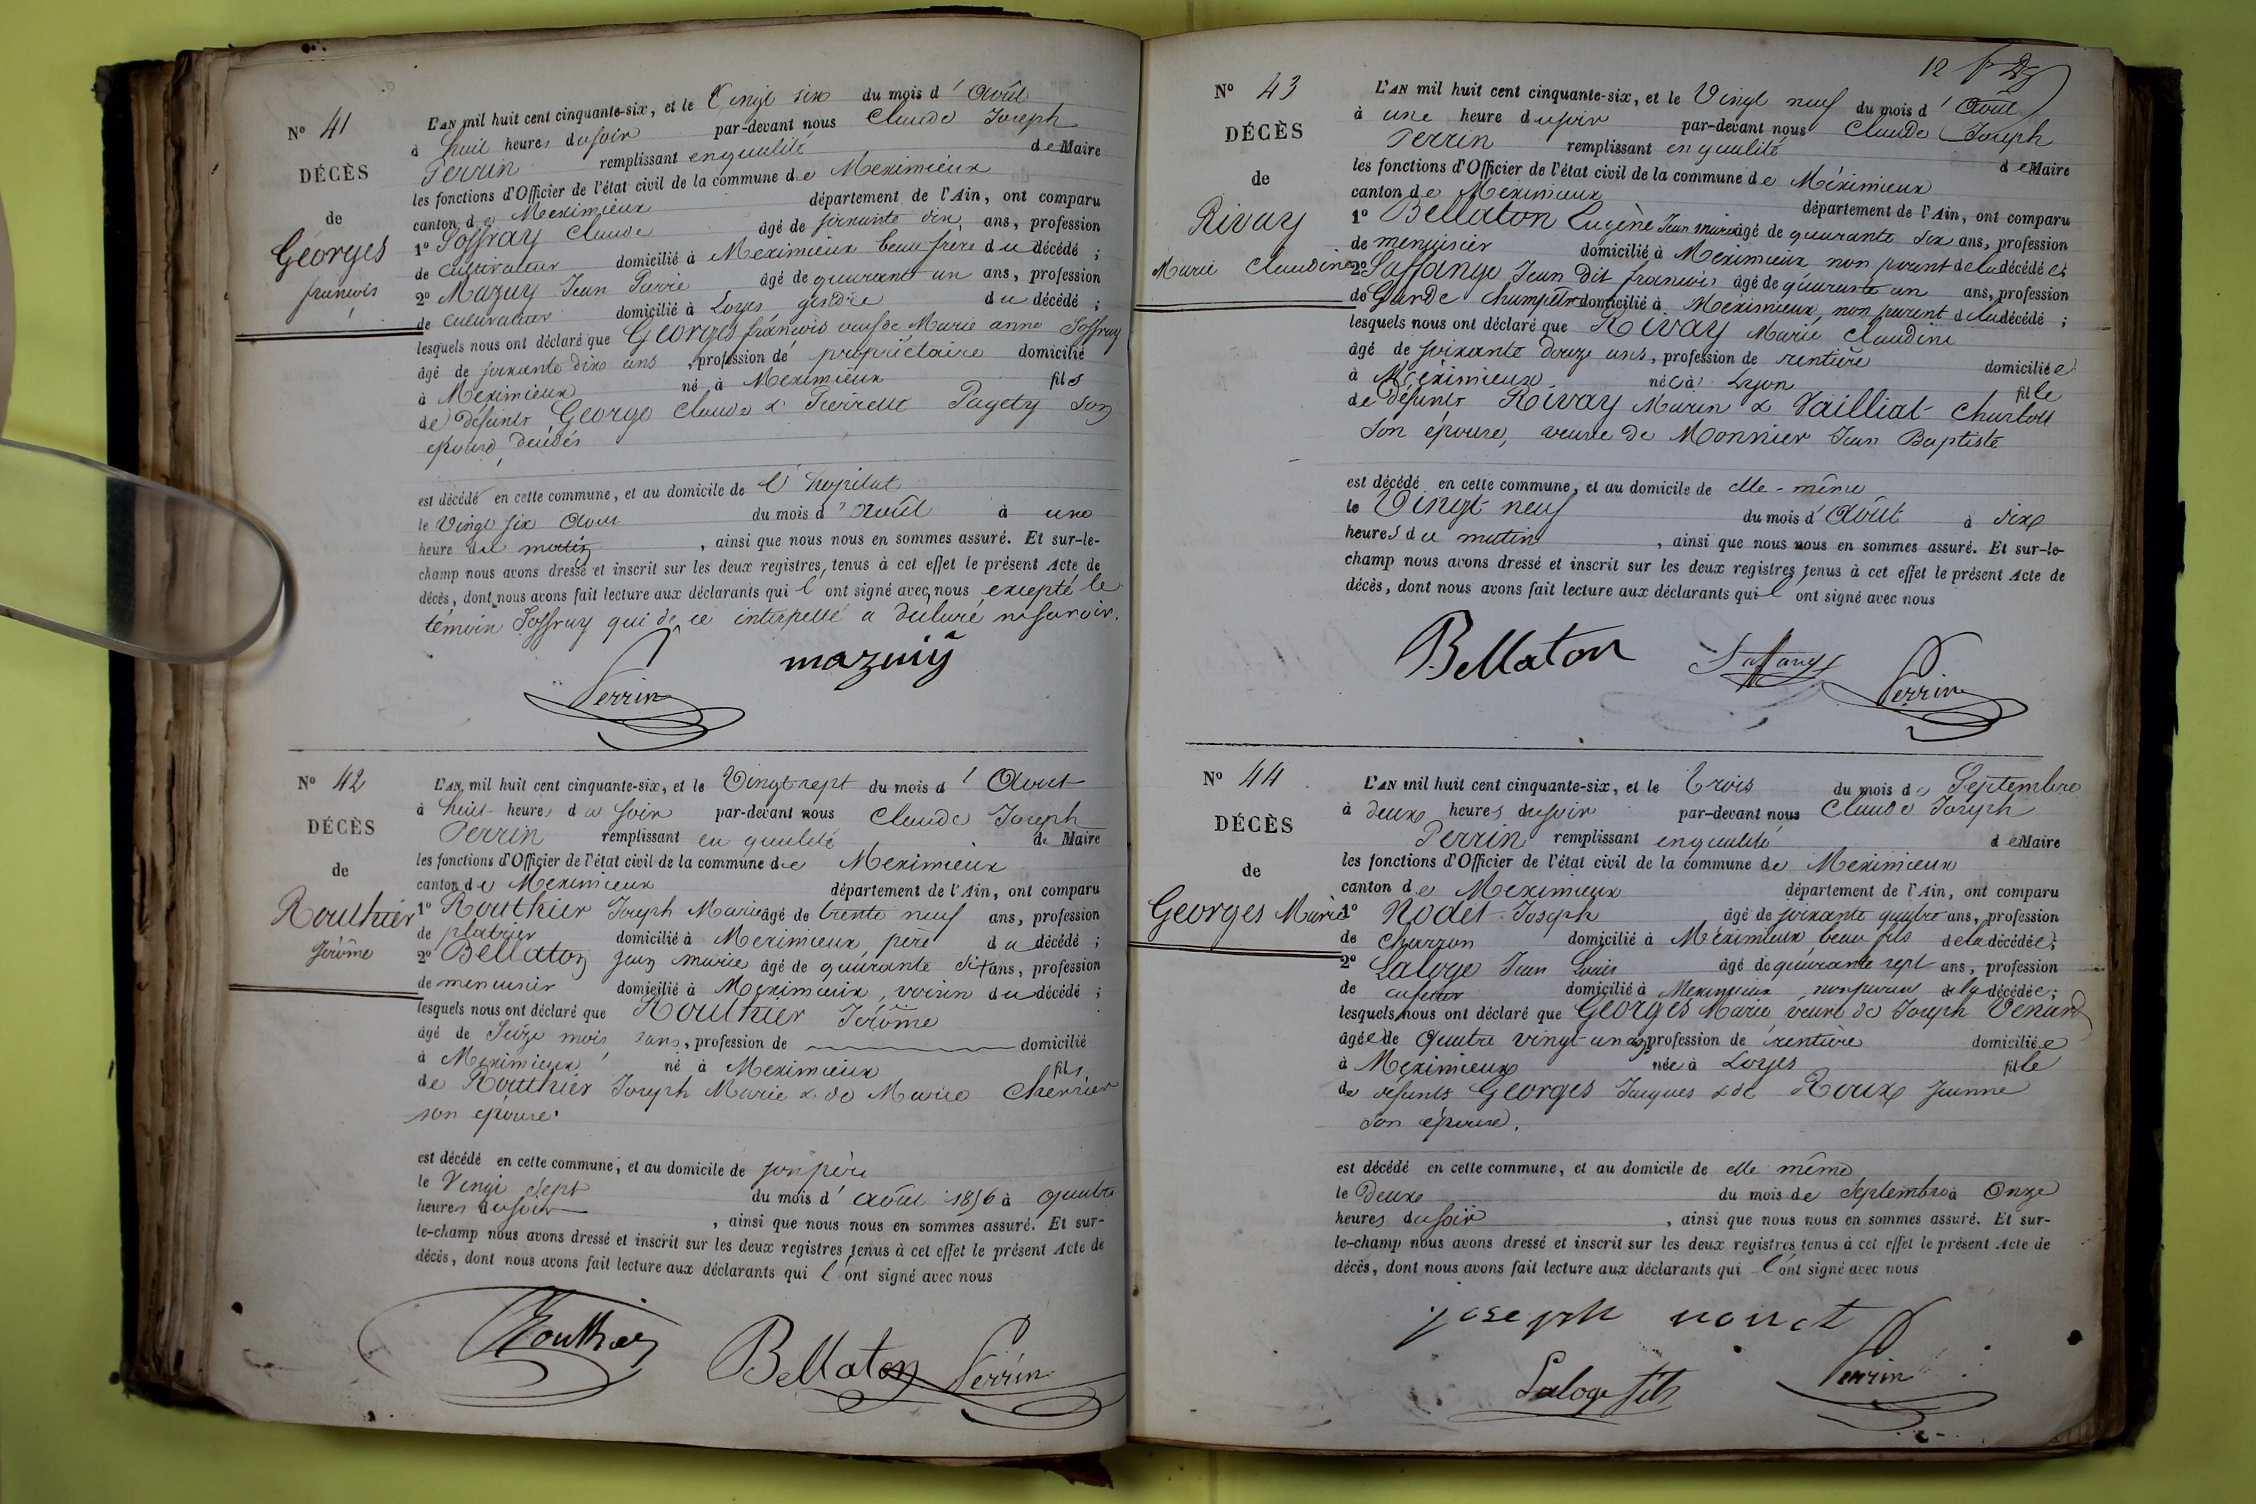 N° 41
DÉCÈS
de
Georges
françois
L'AN mil huit cent cinquante-six, et le Vingt six du mois d'Août
à huit heures du soir par-devant nous Claude Joseph
Perrin remplissant en qualité de Maire
les fonctions d'Officier de l'état civil de la commune de Meximieux
canton de Meximieux département de l'Ain, ont comparu
1° Joffray Claude âgé de soixante dix ans, profession
de cultivateur domicilié à Meximieux beau frère du décédé ;
2° Mazuy Jean Pierre âgé de quarante un ans, profession
de cultivateur domicilié à Loyes gendre du décédé ;
lesquels nous ont déclaré que Georges françois veuf de Marie anne Joffray
âgé de soixante dix ans, profession de propriétaire domicilié
à Meximieux né à Meximieux fils
de défunts George Claude & Pierrette Pagety son
épouse, décédés
est décédé en cette commune, et au domicile de l'hopital
le Vingt six Aout du mois d'Août à une
heure du matin, ainsi que nous nous en sommes assuré. Et sur-le-
champ nous avons dressé et inscrit sur les deux registres tenus à cet effet le présent Acte de
décès, dont nous avons fait lecture aux déclarants qui l'ont signé avec nous excepté le
témoin Joffray qui de ce interpellé a déclaré ne savoir.
mazuiÿ
Perrin
N° 42
DÉCÈS
de
Routhier
Jérôme
L'AN mil huit cent cinquante-six, et le Vingt sept du mois d'Aout
à huit heures du soir par-devant nous Claude Joseph
Perrin remplissant en qualité de Maire
les fonctions d'Officier de l'état civil de la commune de Meximieux
canton de Meximieux département de l'Ain, ont comparu
1° Routhier Joseph Marie âgé de trente neuf ans, profession
de platrier domicilié à Meximieux père du décédé ;
2° Bellaton Jean marie âgé de quarante six ans, profession
de menuisier domicilié à Meximieux, voisin du décédé ;
lesquels nous ont déclaré que Routhier Jérôme
âgé de Seize mois ans, profession de domicilié
à Meximieux né à Meximieux fils
de Routhier Joseph Marie & de Marie Cherrier
son épouse.
est décédé en cette commune, et au domicile de son père
le Vingt sept du mois d'août 1856 à quatre
heures du soir, ainsi que nous nous en sommes assuré. Et sur-
le-champ nous avons dressé et inscrit sur les deux registres tenus à cet effet le présent Acte de
décès, dont nous avons fait lecture aux déclarants qui l'ont signé avec nous
Routhier
Bellaton Perrin
12
N° 43
DÉCÈS
de
Rivay
Marie Claudine
L'AN mil huit cent cinquante-six, et le Vingt neuf du mois d'Août
à une heure du soir par-devant nous Claude Joseph
Perrin remplissant en qualité de Maire
les fonctions d'Officier de l'état civil de la commune de Méximieux
canton de Meximieux département de l'Ain, ont comparu
1° Bellaton Eugène Jean marie âgé de quarante six ans, profession
de menuisier domicilié à Meximieux non parent de la décédée ;
2° Saffange Jean dit francois âgé de quarante un ans, profession
de Garde champêtre domicilié à Meximieux, non parent de la décédé ;
lesquels nous ont déclaré que Rivay Marie Claudine
âgé de soixante douze ans, profession de rentière domiciliée
à Meximieux née à Lyon fille
de défunts Rivay Marin & Vailliat Charlott
son épouse, veuve de Monnier Jean Baptiste
est décédé en cette commune, et au domicile de elle-même
le Vingt neuf du mois d'Août à dix
heures du matin, ainsi que nous nous en sommes assuré. Et sur-le-
champ nous avons dressé et inscrit sur les deux registres tenus à cet effet le présent Acte de
décès, dont nous avons fait lecture aux déclarants qui l'ont signé avec nous
Bellaton Saffange Perrin
N° 44
DÉCÈS
de
Georges Marie
L'AN mil huit cent cinquante-six, et le trois du mois de Septembre
à deux heures du soir par-devant nous Claude Joseph
Perrin remplissant en qualité de Maire
les fonctions d'Officier de l'état civil de la commune de Meximieux
canton de Meximieux département de l'Ain, ont comparu
1° Nodet Joseph âgé de soixante quatre ans, profession
de charron domicilié à Meximieux beau fils de la décédée ;
2° Laloge Jean Louis âgé de quarante sept ans, profession
de domicilié à Meximieux non parent de la décédée ;
lesquels nous ont déclaré que Georges Marie veuve de Joseph Venard
âgée de Quatre vingt un ans profession de rentière domiciliée
à Meximieux née à Loyes fille
de défunts Georges Jacques & de Roux Jeanne
son épouse.
est décédé en cette commune, et au domicile de elle même
le Deux du mois de Septembre à Onze
heures du soir, ainsi que nous nous en sommes assuré. Et sur-
le-champ nous avons dressé et inscrit sur les deux registres tenus à cet effet le présent Acte de
décès, dont nous avons fait lecture aux déclarants qui l'ont signé avec nous
joseph
Laloge fils Perrin